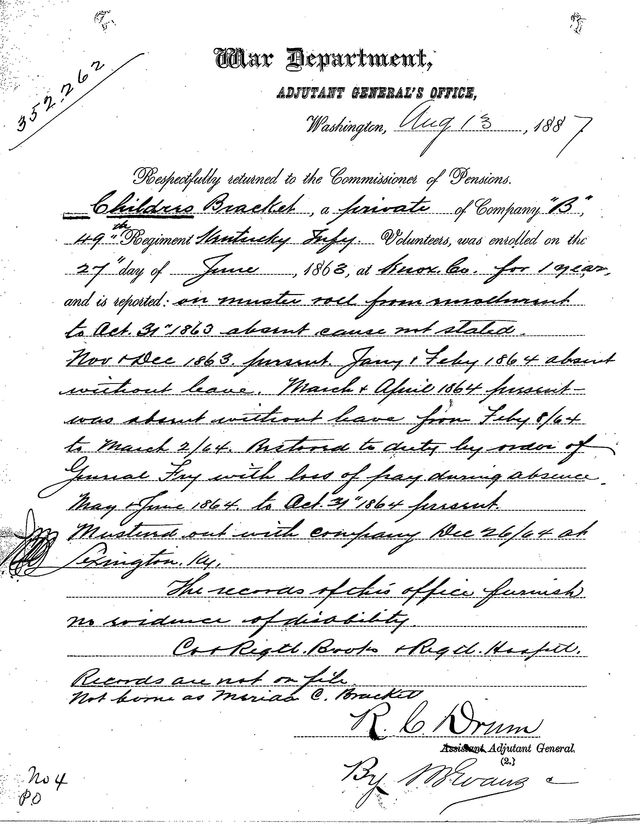 352.262
War Department,
ADJUTANT GENERAL'S OFFICE,
Washington, Aug 13, 1887
Respectfully returned to the Commissioner of Pensions.
Childres Bracket, a private of Company "B",
49th Regiment Kentucky Infy. Volunteers, was enrolled on the
27" day of June, 1863, at Knox. Co. for 1 year,
and is reported: on muster roll from enrollment
to Oct. 31" 1863 absent cause not stated.
Nov & Dec 1863. present. Jany & Feby 1864 absent
without leave. March & April 1864 present—
was absent without leave from Feby 8/64
to March 2/64. Restored to duty by order of
General Fry with loss of pay during absence.
May & June 1864. to Oct. 31" 1864 present.
Mustered out with company Dec 26/64 at
Lexington, Ky.
The records of this office furnish
no evidence of disability
Co & Regtl. Books & Regtl. Hospítl.
Records are not on file
Not borne as C. Bracket
R. C. Drum
Assistant Adjutant General.
(2.)
By Evans
No 4
PO